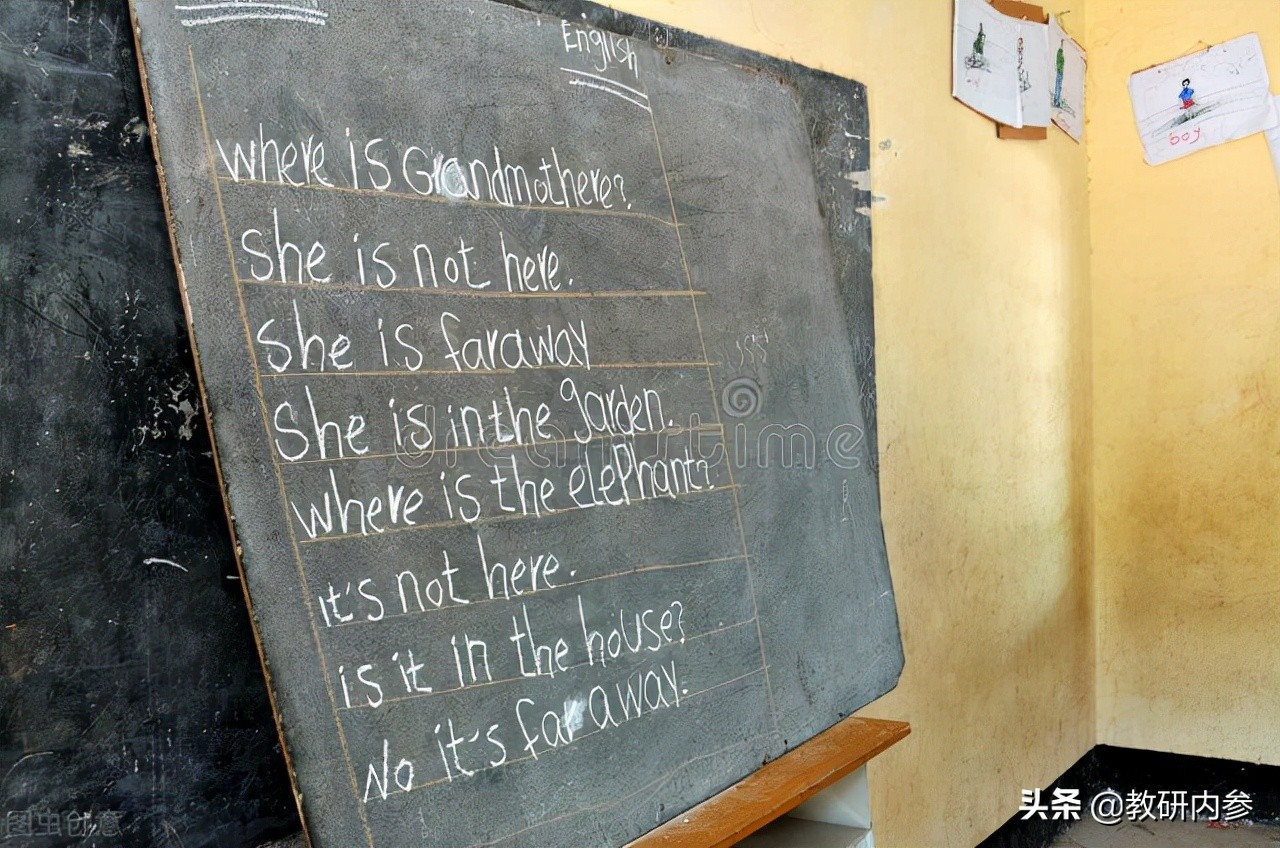 English
where is Grandmothere?
She is not here.
She is faraway
She is in the garden.
where is the elePhant?
it's not here.
is it in the house?
No it's far away.
boy
dreamstime
图虫创意
头条 @教研内参